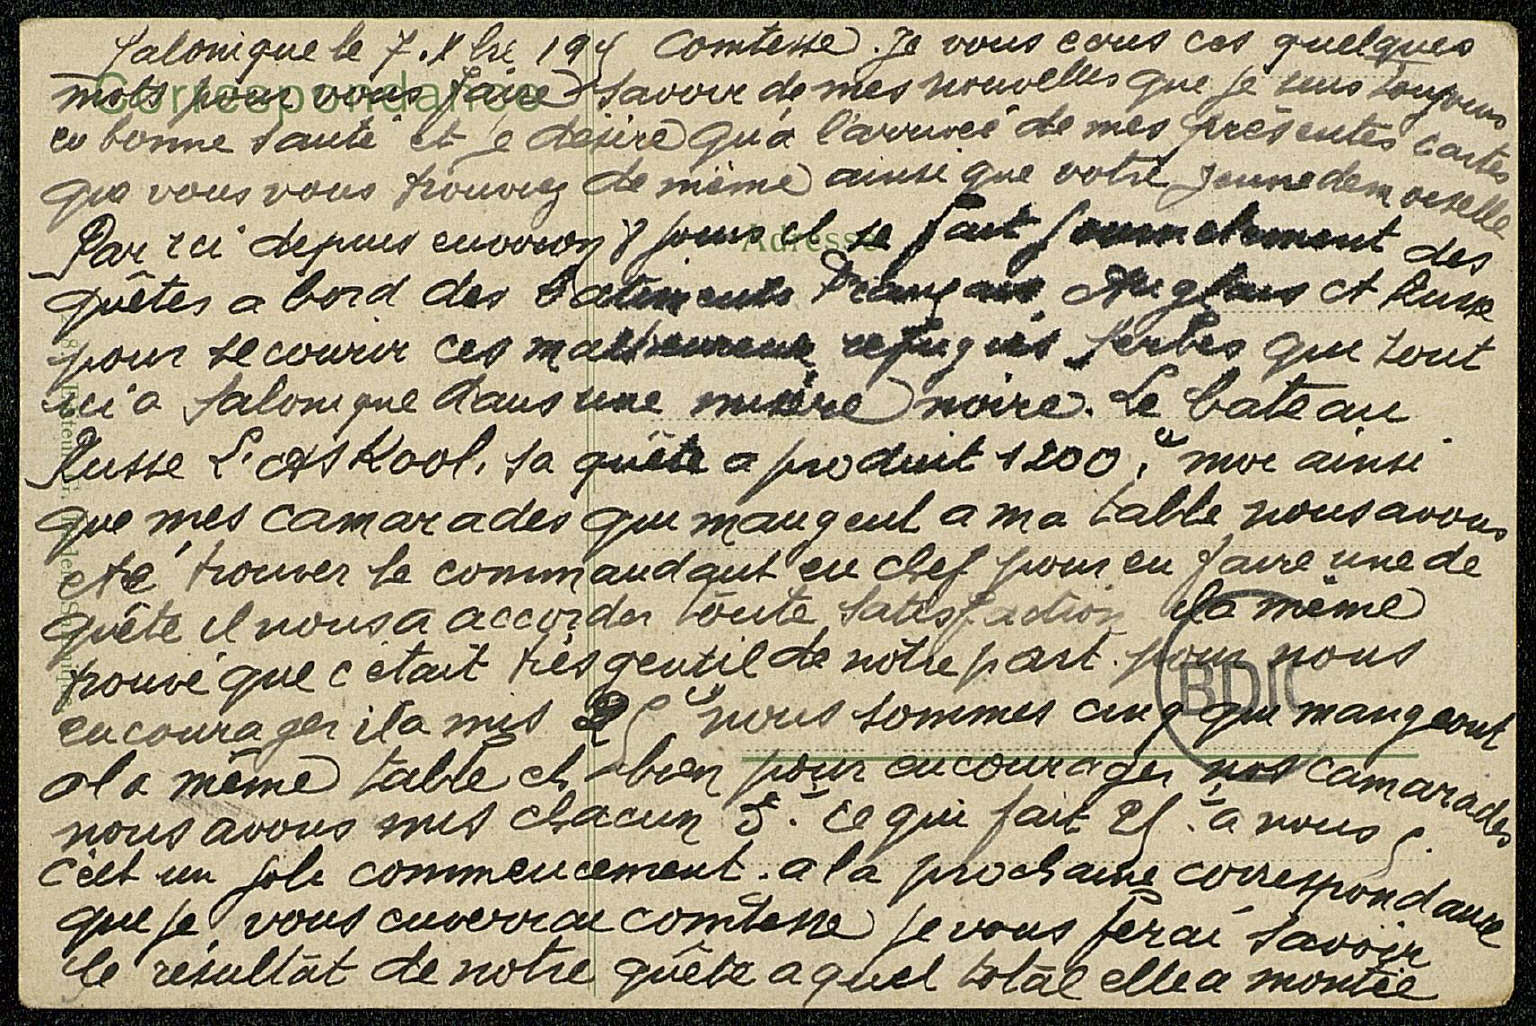 Salonique le 7. Xbre 191 Comtesse. Je vous ecris ces quelques
mots pour vous faire savoir de mes nouvelles que je suis toujours
en bonne santé et je désire qu'a l'arriveé de mes présentes cartes
que vous vous trouviez de même ainsi que votre jeune demoiselle
Par ici depuis environ 8 jours il se fait des
quêtes a bord des batiments Français Anglais et Russe
pour secourir ces malheureux refugiés Serbes qui sont
ici a Salonique dans une misère noire. Le bateau
Russe L'Askool, sa quête a produit 1200, moi ainsi
que mes camarades qui mangent a ma table nous avons
eté trouver le commandant en chef pour en faire une de
quête il nous a accorder toute satisfaction il a même
trouvé que c'etait très gentil de notre part. pour nous
encourager il a mis 25 nous sommes cinq qui mangeont
a la même table eh bien pour encourager nos camarades
nous avons mis chacun 5. ce qui fait 25. a nous 5.
c'est un joli commencement. a la prochaine correspondance
que je vous enverrai comtesse je vous ferai savoir
le résultat de notre quête a quel total elle a montée
Correspondance
Adresse
BDIC